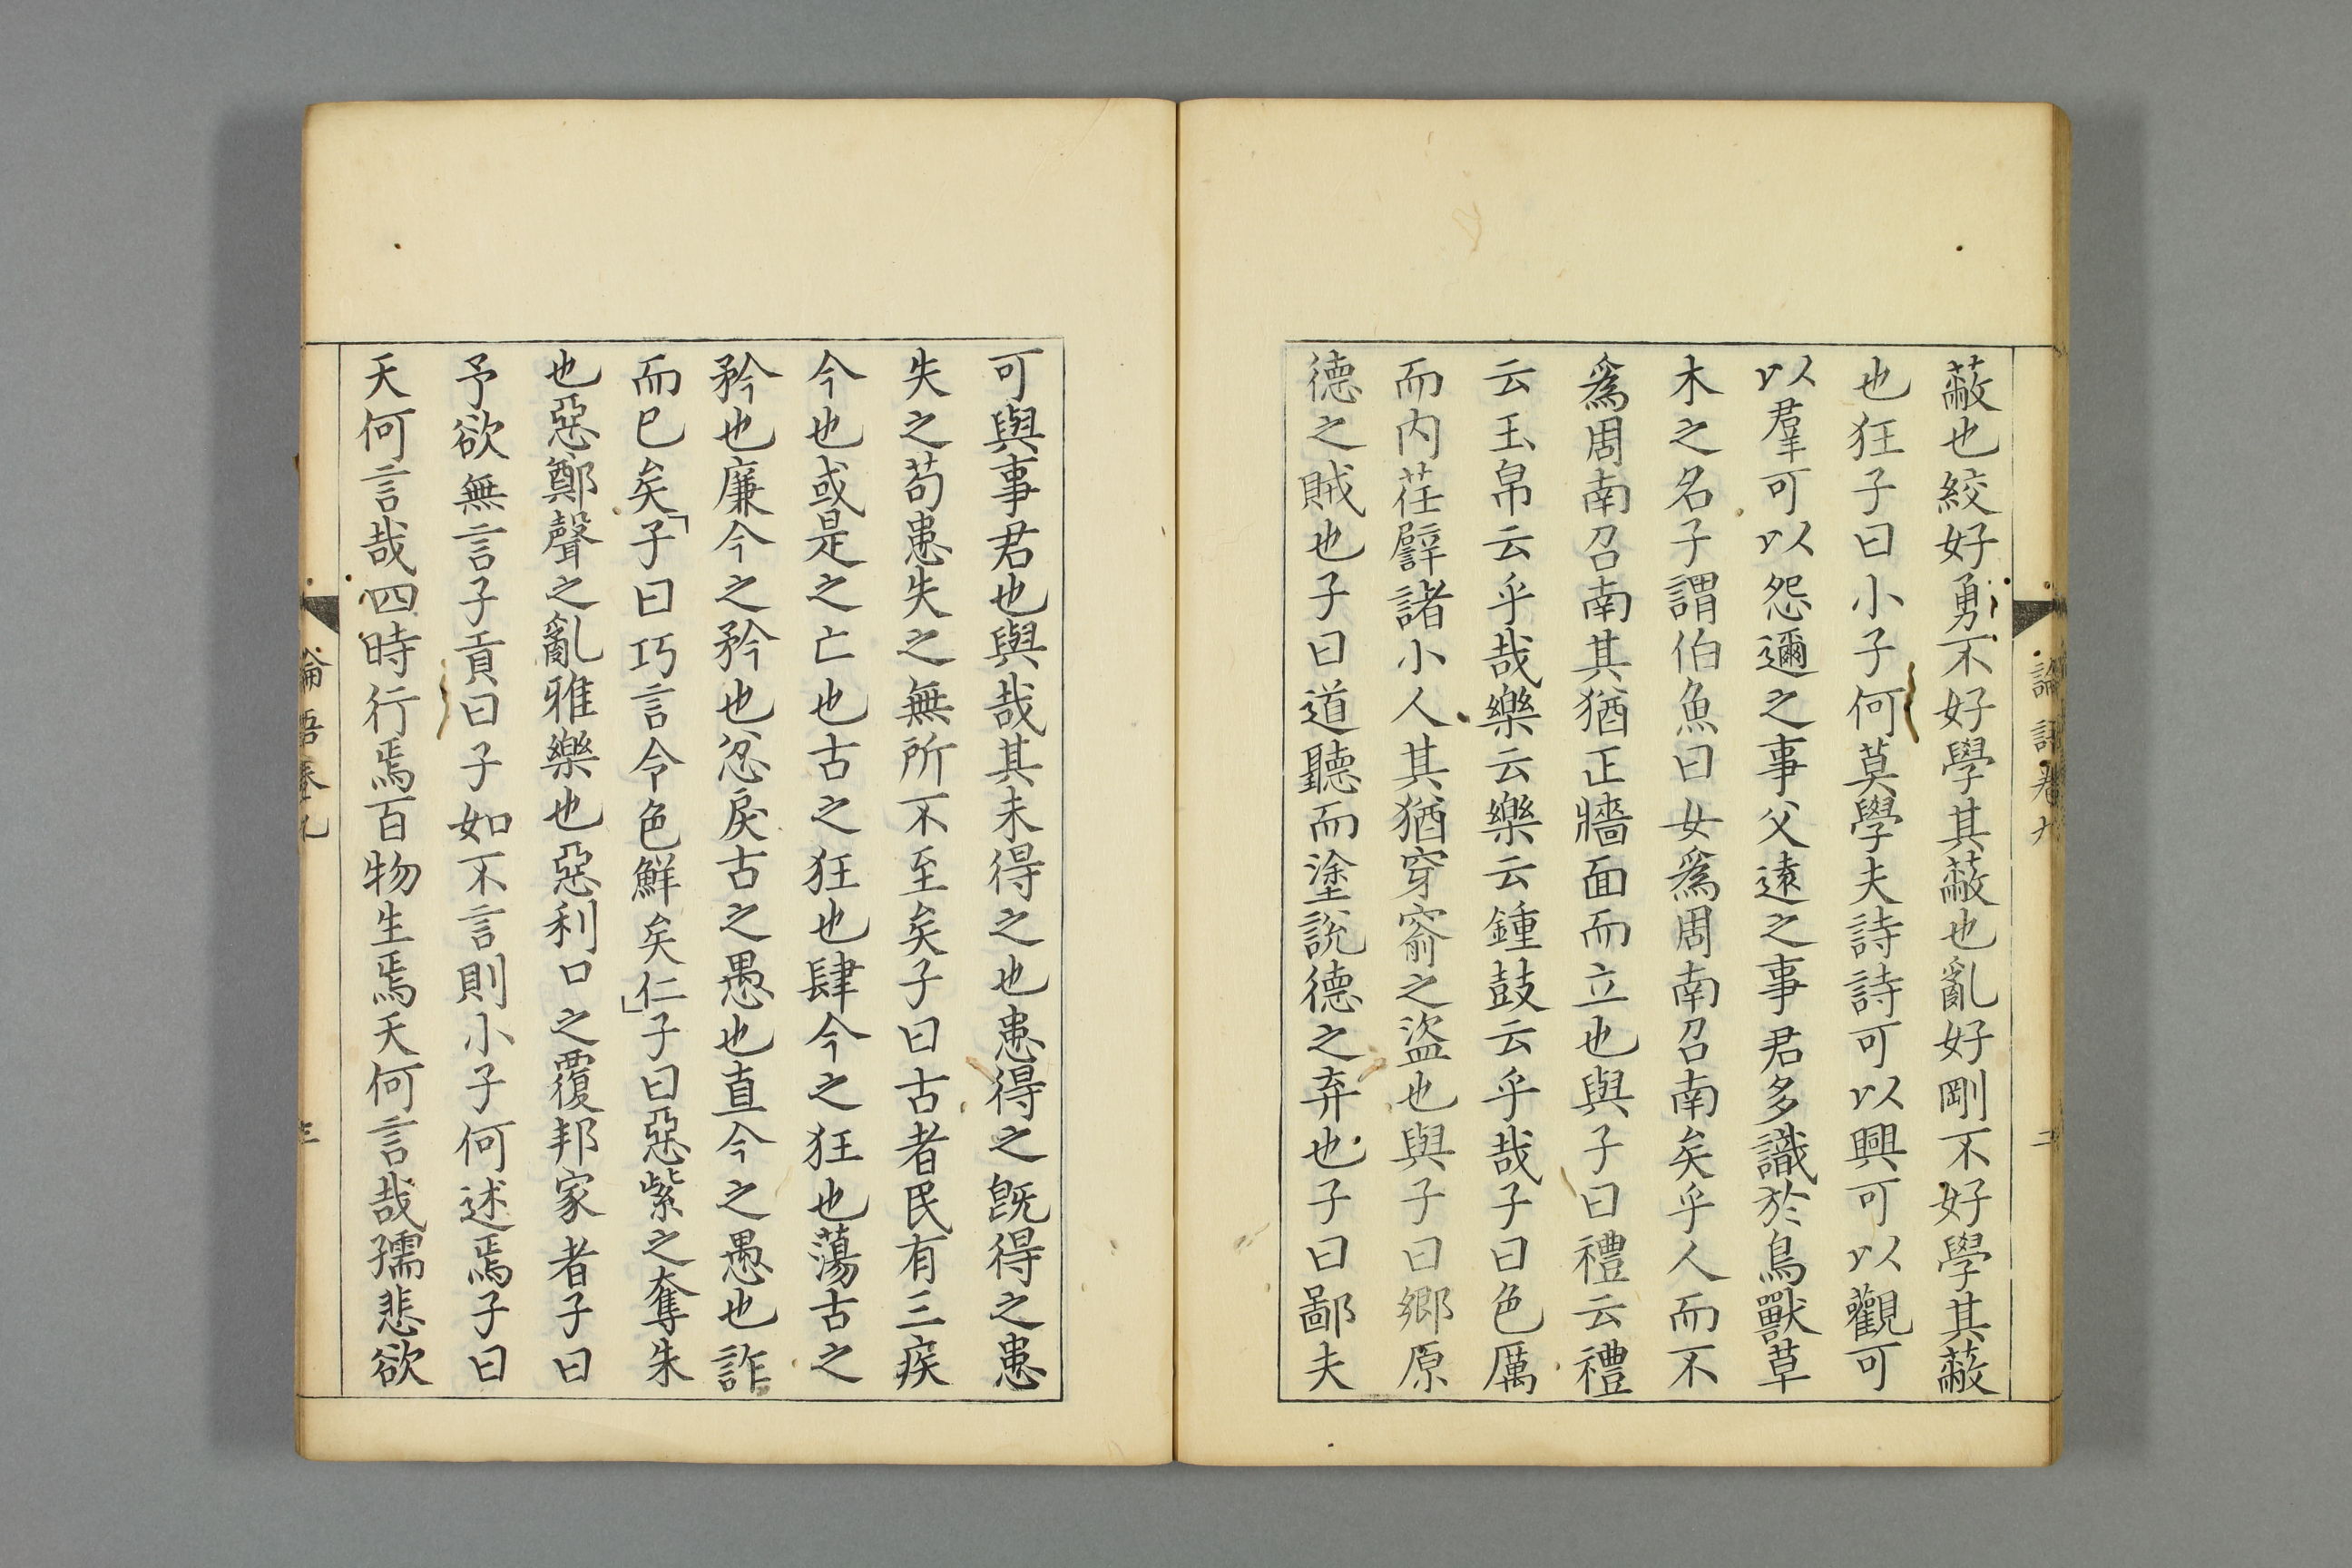 論語卷九
二
蔽也絞好勇不好學其蔽也亂好剛不好學其蔽
也狂子曰小子何莫學夫詩詩可以興可以觀可
以羣可以怨邇之事父遠之事君多識於鳥獸草
木之名子謂伯魚曰女爲周南召南矣乎人而不
爲周南召南其猶正牆面而立也與子曰禮云禮
云玉帛云乎哉樂云樂云鍾鼓云乎哉子曰色厲
而内荏譬諸小人其猶穿窬之盜也與子曰鄉原
德之賊也子曰道聽而塗說德之弃也子曰鄙夫
可與事君也與哉其未得之也患得之既得之患
失之苟患失之無所不至矣子曰古者民有三疾
今也或是之亡也古之狂也肆今之狂也蕩古之
矜也廉今之矜也忿戾古之愚也直今之愚也詐
而已矣「子曰巧言令色鮮矣仁」子曰惡紫之奪朱
也惡鄭聲之亂雅樂也惡利口之覆邦家者子曰
予欲無言子貢曰子如不言則小子何述焉子曰
天何言哉四時行焉百物生焉天何言哉孺悲欲
論語卷九
三